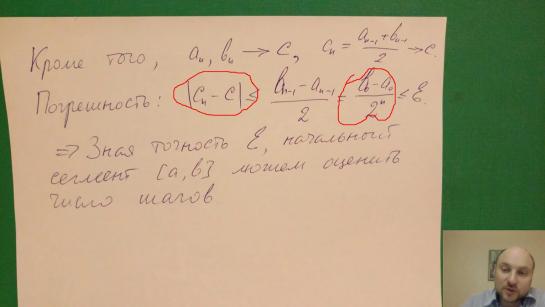 Кроме того, aₙ, bₙ → c, cₙ = (aₙ₋₁ + bₙ₋₁)/2 → c.
Погрешность: |cₙ − c| ≤ (bₙ₋₁ − aₙ₋₁)/2 = (b₀ − a₀)/2ⁿ ≤ ℰ.
⇒ Зная точность ℰ, начальный
сегмент [a, b] можем оценить
число шагов